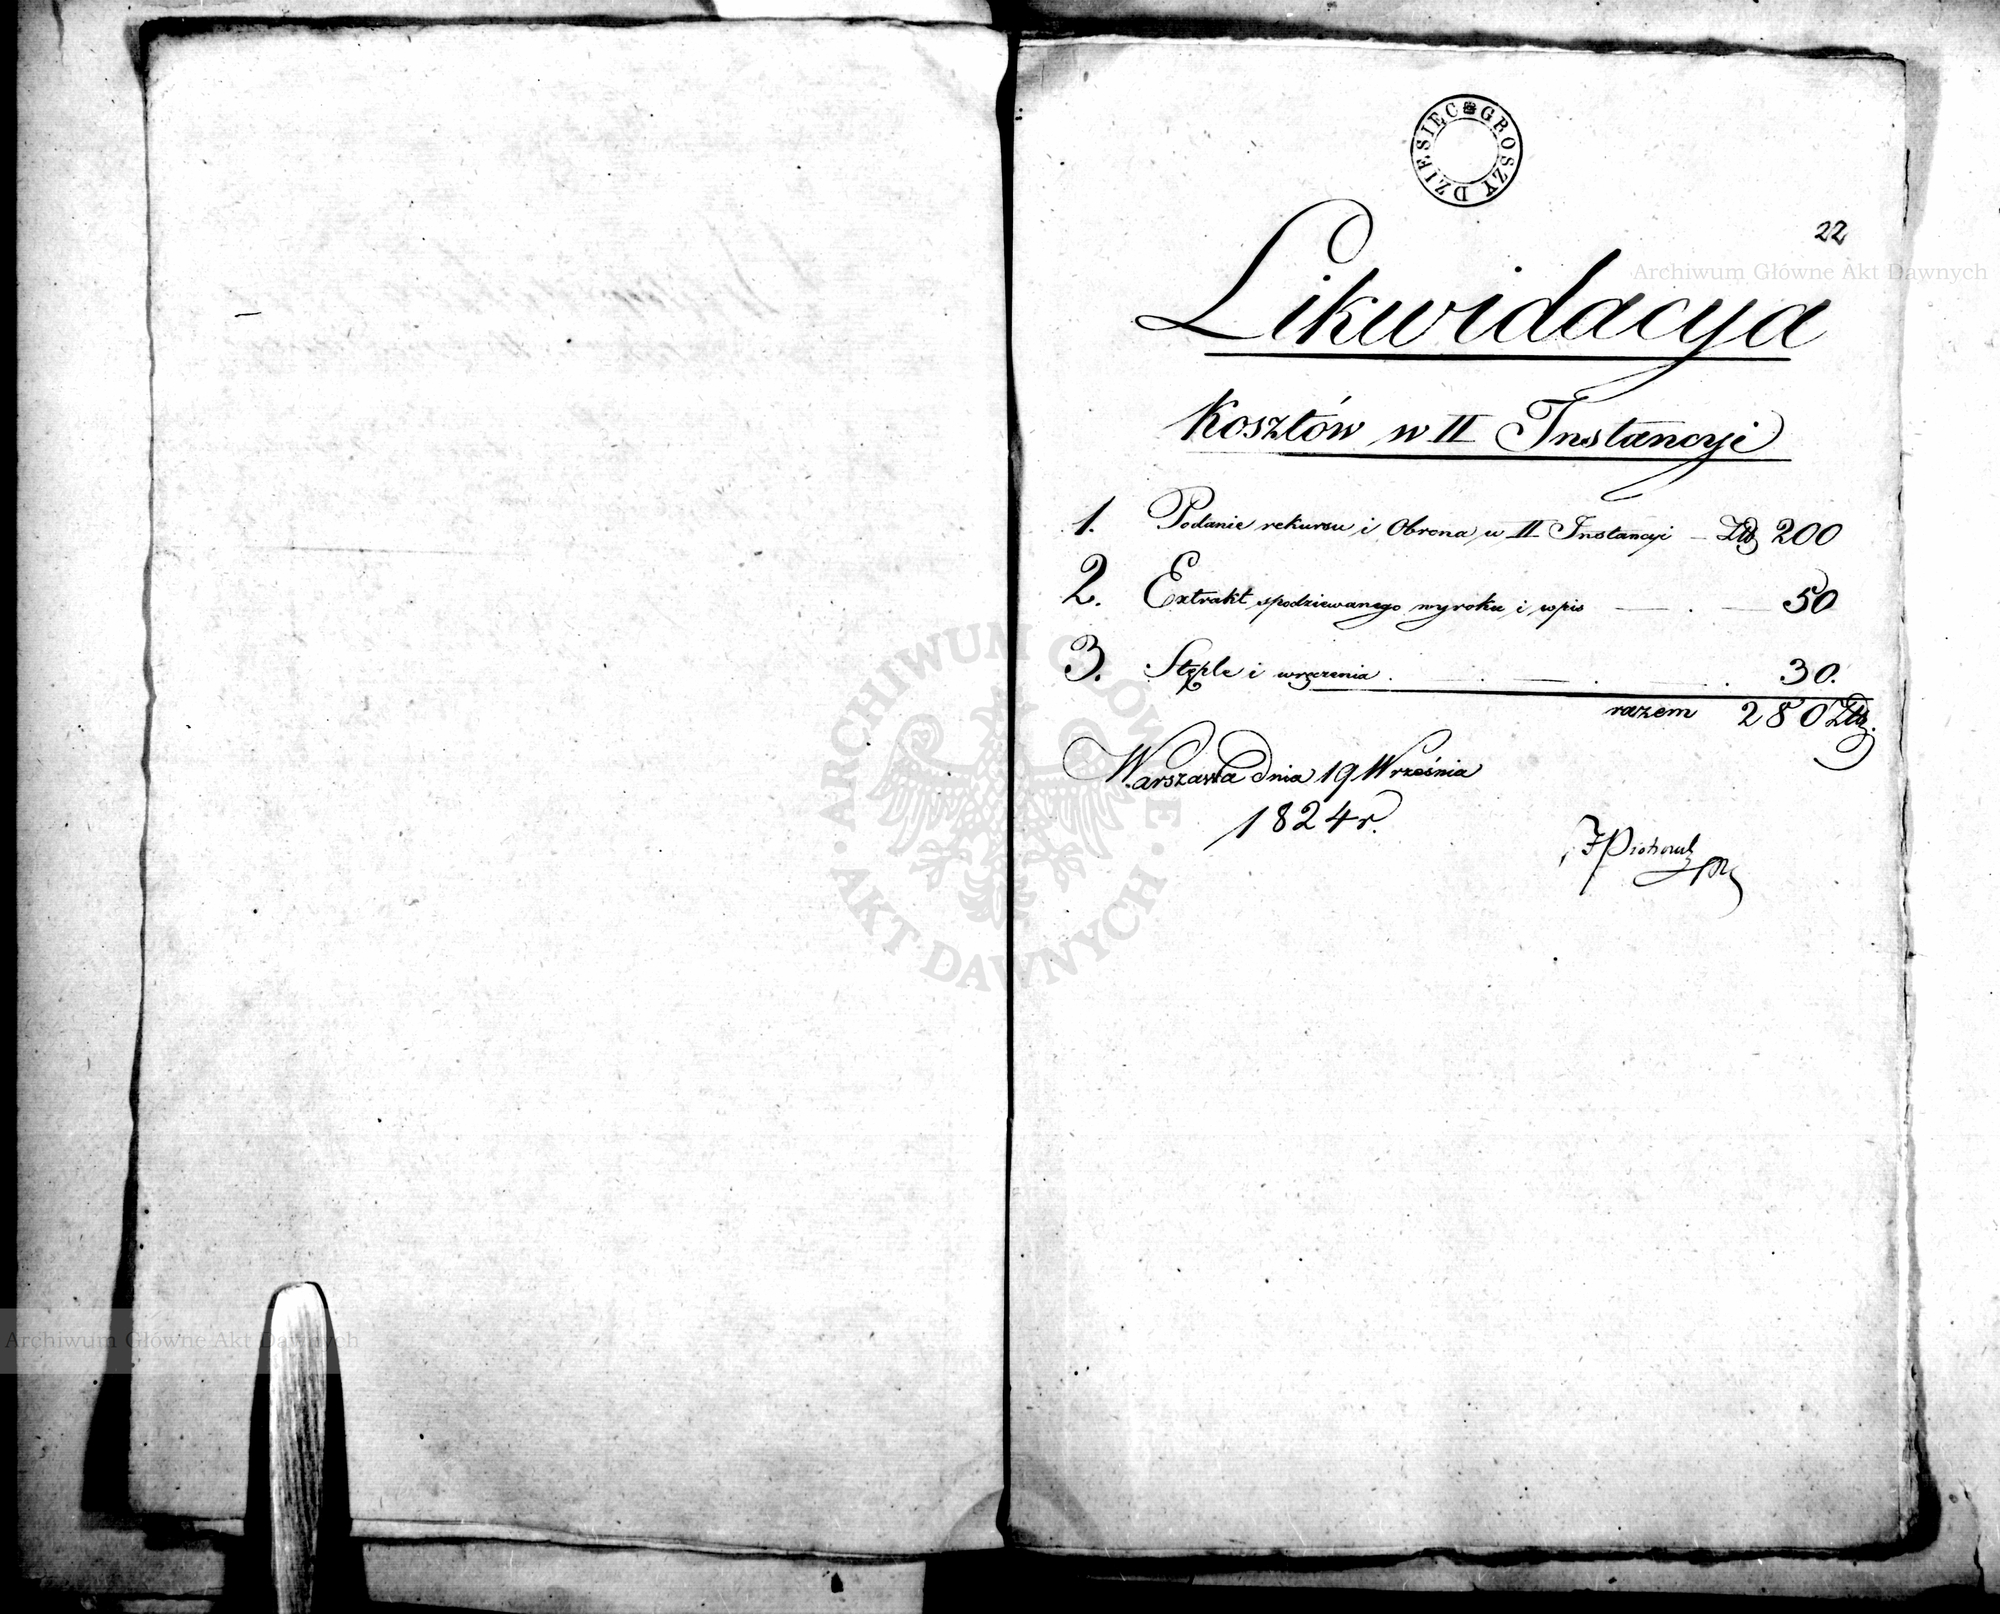 GROSZY DZIESIĘC
22
Archiwum Główne Akt Dawnych
Likwidacya
Kosztów w II Instancyi
1. Podanie rekursu i Obrona w II Instancyi - Złt 200
2. Extrakt spodziewanego wyroku i wpis 50
3. Stęple i wręczenia 30.
razem 280 Złt.
Warszawa dnia 19 Września
1824 r.
ARCHIWUM GŁÓWNE
AKT DAWNYCH
Archiwum Główne Akt Dawnych